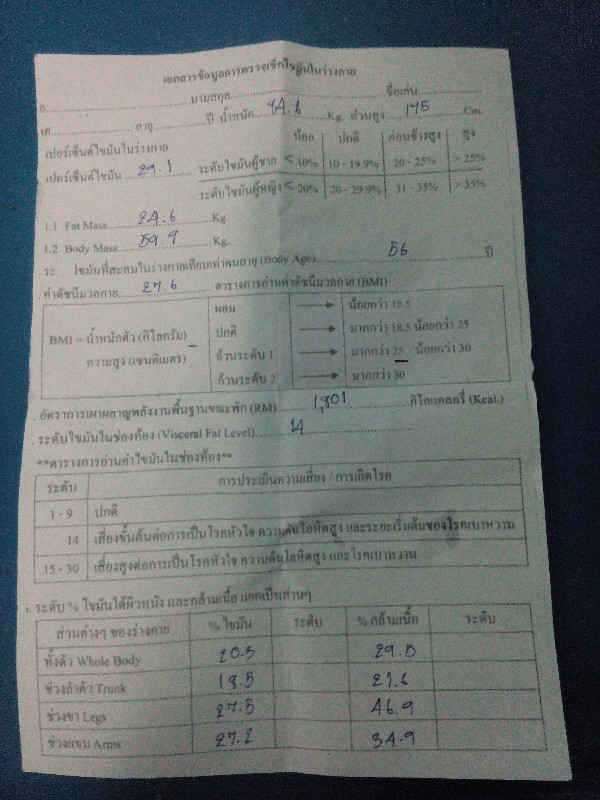 เอกสารข้อมูลการตรวจเช็คไขมันในร่างกาย
อ..........นามสกุล..........ชื่อเล่น..........
เศ..........อายุ..........ปี น้ำหนัก 84.6 Kg. ส่วนสูง 175 Cm.
เปอร์เซ็นต์ไขมันในร่างกาย น้อย ปกติ ค่อนข้างสูง สูง
เปอร์เซ็นต์ไขมัน 29.1 ระดับไขมันผู้ชาย < 10% 10 - 19.9% 20 - 25% > 25%
ระดับไขมันผู้หญิง < 20% 20 - 29.9% 31 - 35% > 35%
1.1 Fat Mass 24.6 Kg.
1.2 Body Mass 59.9 Kg.
ระ ไขมันที่สะสมในร่างกายเทียบเท่าคนอายุ (Body Age) 56 ปี
. ค่าดัชนีมวลกาย 27.6 ตารางการอ่านค่าดัชนีมวลกาย (BMI)
BMI = น้ำหนักตัว (กิโลกรัม)
ความสูง (เซนติเมตร)
ผอม น้อยกว่า 18.5
ปกติ มากกว่า 18.5 น้อยกว่า 25
อ้วนระดับ 1 มากกว่า 25 - น้อยกว่า 30
อ้วนระดับ 2 มากกว่า 30
. อัตราการเผาผลาญพลังงานพื้นฐานขณะพัก (RM) 1,801 กิโลแคลอรี่ (Kcal.)
. ระดับไขมันในช่องท้อง (Visceral Fat Level) 14
**ตารางการอ่านค่าไขมันในช่องท้อง**
ระดับ การประเมินความเสี่ยง / การเกิดโรค
1 - 9 ปกติ
14 เสี่ยงขั้นต้นต่อการเป็นโรคหัวใจ ความดันโลหิตสูง และระยะเริ่มต้นของโรคเบาหวาน
15 - 30 เสี่ยงสูงต่อการเป็นโรคหัวใจ ความดันโลหิตสูง และโรคเบาหวาน
ระดับ % ไขมันใต้ผิวหนัง และกล้ามเนื้อ แยกเป็นส่วนๆ
ส่วนต่างๆ ของร่างกาย % ไขมัน ระดับ % กล้ามเนื้อ ระดับ
ทั้งตัว Whole Body 20.5 29.0
ช่วงลำตัว Trunk 18.5 21.6
ช่วงขา Legs 27.5 46.9
ช่วงแขน Arms 27.2 34.9